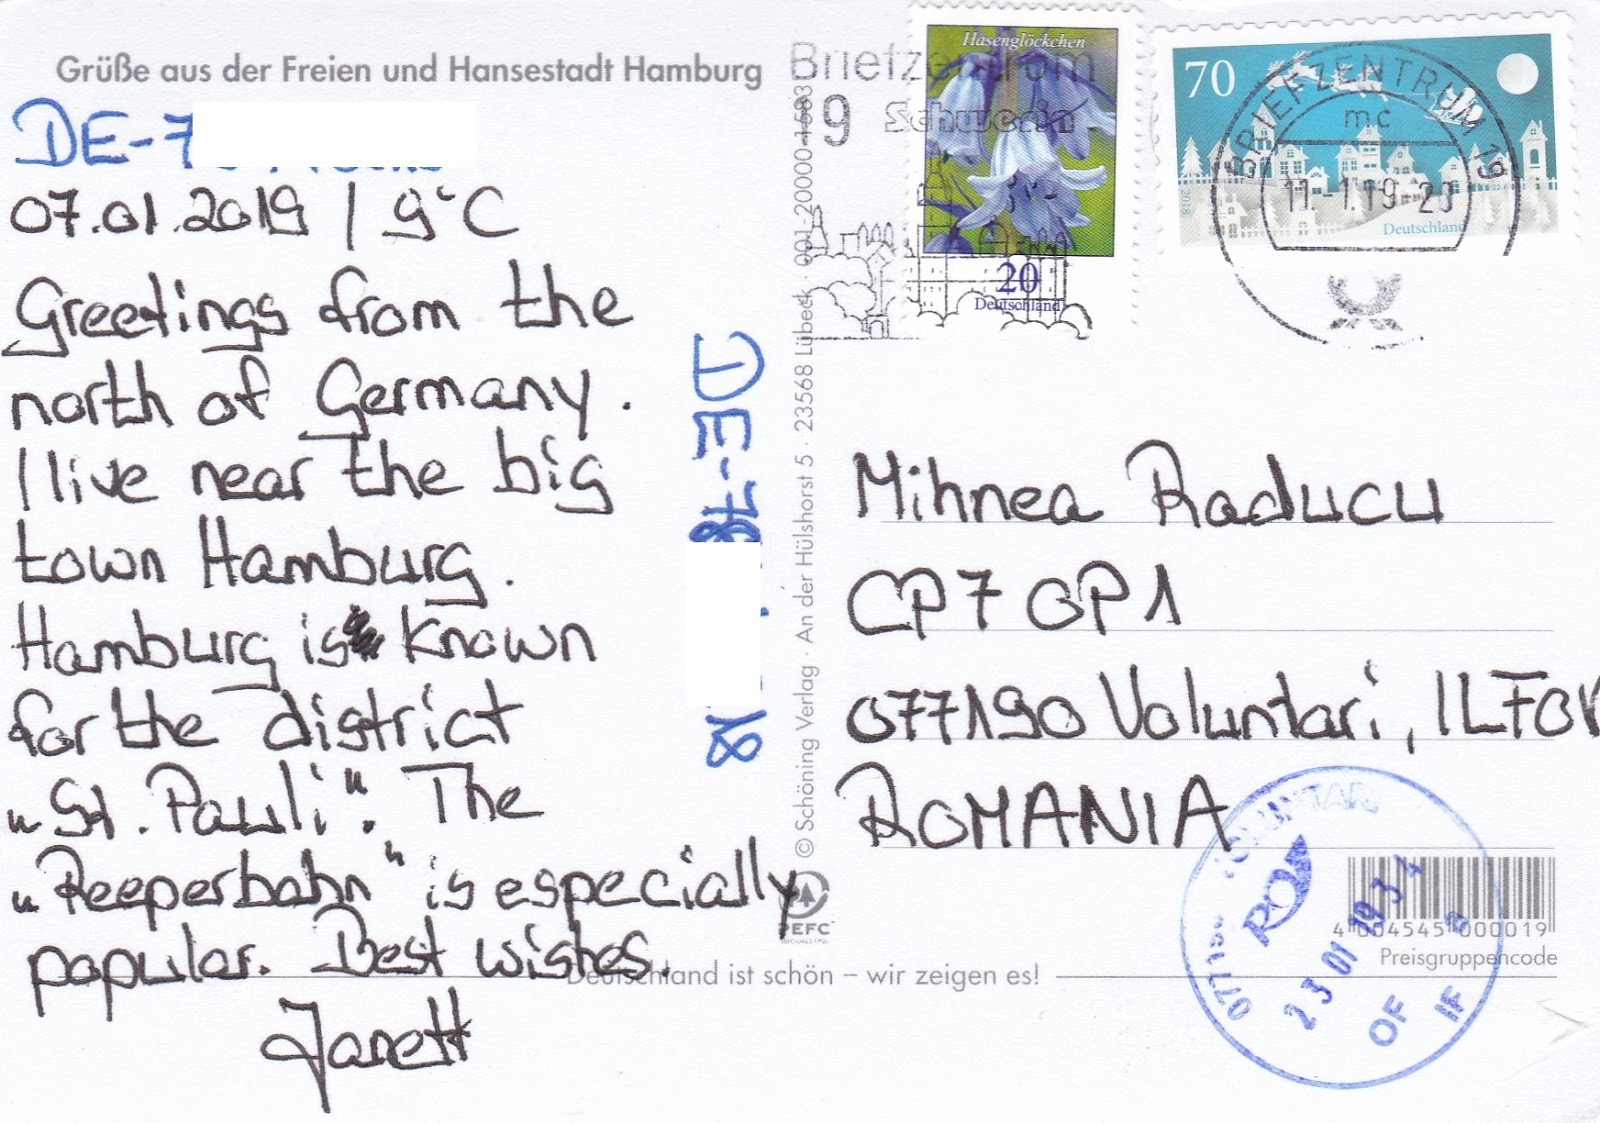 Grüße aus der Freien und Hansestadt Hamburg
DE-7
07.01.2019 / 9°C
Greetings from the
north of Germany.
I live near the big
town Hamburg.
Hamburg is known
for the district
„St. Pauli“. The
„Reeperbahn“ is especially
popular. Best wishes.
Janett
DE-78
18
© Schöning Verlag · An der Hülshorst 5 · 23568 Lübeck · 001-20000-1583
Briefzentrum
19
Schwerin
Hasenglöckchen
20
Deutschland
70
2018
Deutschland
BRIEFZENTRUM 19
mc
11.-1.19-20
Mihnea Raducu
CP7 OP1
077190 Voluntari, ILFOV
ROMANIA
077190 VOLUNTARI
23 01 19 34
OF IF
PEFC
4 004545 000019
Preisgruppencode
Deutschland ist schön – wir zeigen es!